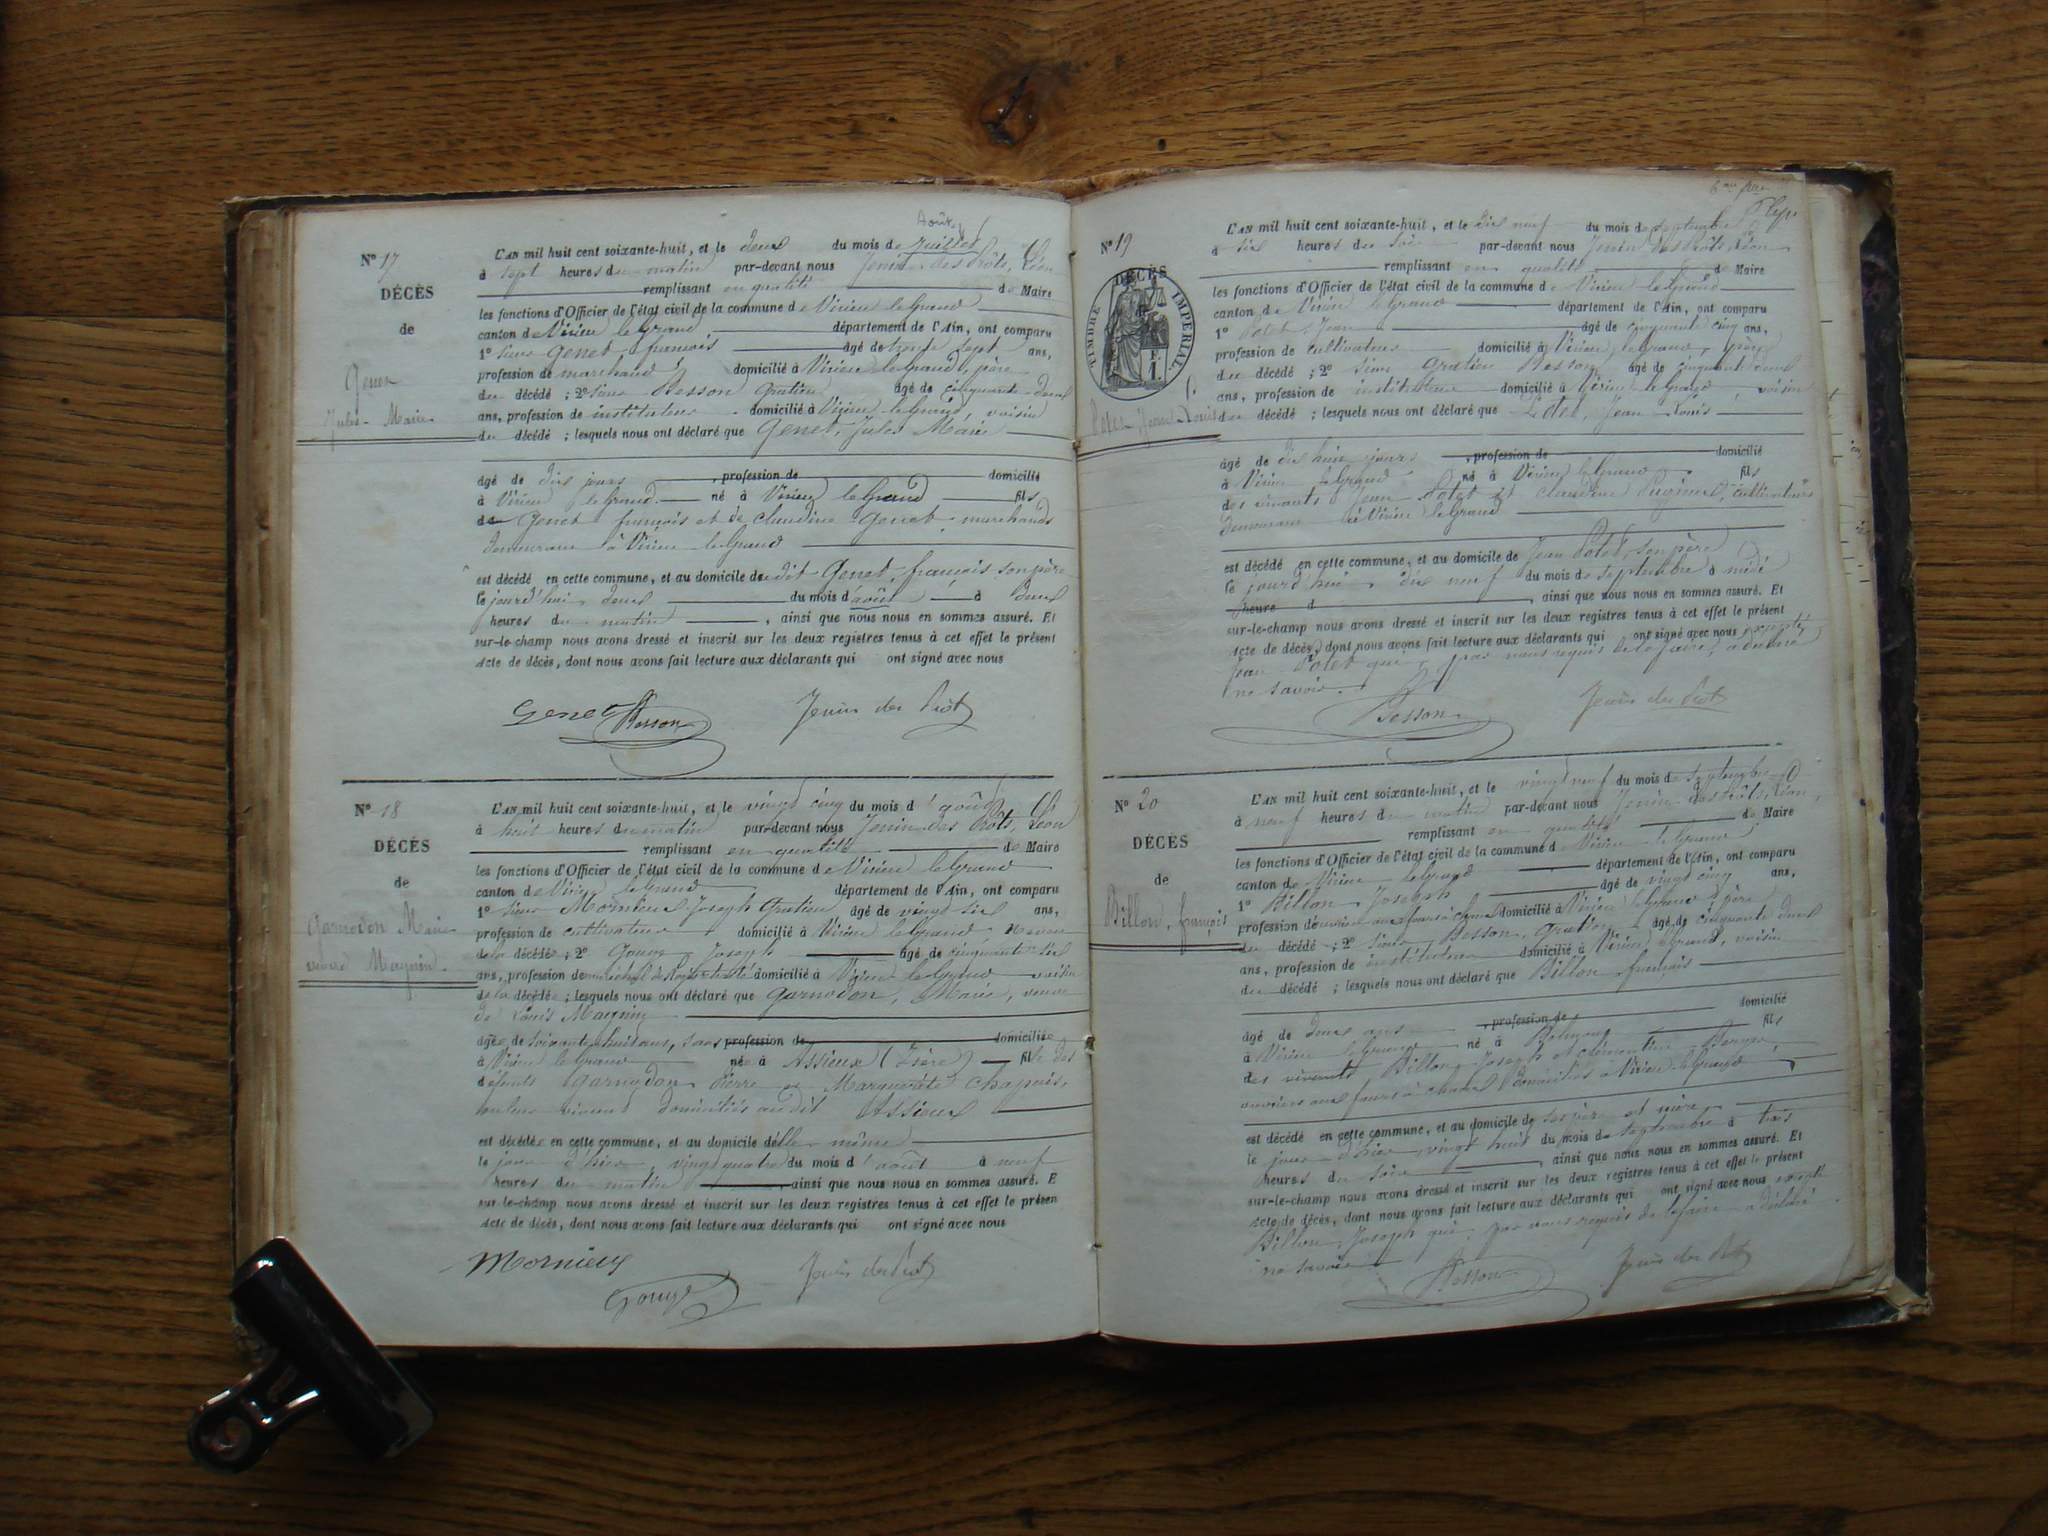 Août
N° 17
DÉCÈS
de
Genet
Jules-Marie
L'AN mil huit cent soixante-huit, et le deux du mois de Juillet
à sept heures du matin par-devant nous Jenin des Prôts, Léon
remplissant en qualité de Maire
les fonctions d'Officier de l'état civil de la commune de Virieu le Grand
canton de Virieu le Grand département de l'Ain, ont comparu
1° sieur Genet, françois âgé de trente sept ans,
profession de marchand domicilié à Virieu le Grand, père
du décédé ; 2° sieur Besson Gratien âgé de cinquante-deux
ans, profession de instituteur domicilié à Virieu le Grand, voisin
du décédé ; lesquels nous ont déclaré que Genet, Jules Marie
âgé de dix jours , profession de domicilié
à Virieu le Grand né à Virieu le Grand fils
de Genet françois et de claudine Genet marchands
demeurant à Virieu le Grand
est décédé en cette commune, et au domicile dudit Genet, françois son père
le jourd'hui deux du mois d'août à deux
heures du matin , ainsi que nous nous en sommes assuré. Et
sur-le-champ nous avons dressé et inscrit sur les deux registres tenus à cet effet le présent
acte de décès, dont nous avons fait lecture aux déclarants qui ont signé avec nous
Genet Besson Jenin des Prôts
N° 18
DÉCÈS
de
Garnodon Marie
veuve Magnin
L'AN mil huit cent soixante-huit, et le vingt cinq du mois d'août
à huit heures du matin par-devant nous Jenin des Prôts, Léon
remplissant en qualité de Maire
les fonctions d'Officier de l'état civil de la commune de Virieu le Grand
canton de Virieu le Grand département de l'Ain, ont comparu
1° sieur Mornieux Joseph Gratien âgé de vingt six ans,
profession de cultivateur domicilié à Virieu le Grand neveu
de la décédée ; 2° Gouge Joseph âgé de cinquante six
ans, profession de domicilié à Virieu le Grand voisin
de la décédée ; lesquels nous ont déclaré que Garnodon, Marie, veuve
de Louis Magnin
âgée de soixante huit ans, sans profession de domiciliée
à Virieu le Grand née à Assieux (Isère) fille des
défunts Garnodon Pierre et Marguerite Chapuis,
vivant domiciliés audit Assieux
est décédée en cette commune, et au domicile d'elle même
le jour d'hier, vingt quatre du mois d'août à neuf
heures du matin , ainsi que nous nous en sommes assuré. E
sur-le-champ nous avons dressé et inscrit sur les deux registres tenus à cet effet le présen
acte de décès, dont nous avons fait lecture aux déclarants qui ont signé avec nous
Mornieux Gouge Jenin des Prôts
N° 19
TIMBRE IMPERIAL
DÉCÈS
Potet Jean-Louis
L'AN mil huit cent soixante-huit, et le dix neuf du mois de septembre
à six heures du soir par-devant nous Jenin des Prôts, Léon
remplissant en qualité de Maire
les fonctions d'Officier de l'état civil de la commune de Virieu le Grand
canton de Virieu le Grand département de l'Ain, ont comparu
1° Potet, Jean âgé de cinquante cinq ans,
profession de cultivateur domicilié à Virieu le Grand, père
du décédé ; 2° sieur Gratien Besson âgé de cinquante deux
ans, profession de instituteur domicilié à Virieu le Grand, voisin
du décédé ; lesquels nous ont déclaré que Potet, Jean Louis
âgé de dix huit jours , profession de domicilié
à Virieu le Grand né à Virieu le Grand fils
des vivants Jean Potet et claudine cultivateurs
demeurant à Virieu le Grand
est décédé en cette commune, et au domicile de Jean Potet, son père
le jourd'hui dix neuf du mois de septembre à midi
heure d , ainsi que nous nous en sommes assuré. Et
sur-le-champ nous avons dressé et inscrit sur les deux registres tenus à cet effet le présent
acte de décès, dont nous avons fait lecture aux déclarants qui ont signé avec nous excepté
Jean Potet qui, par nous requis de le faire, a déclaré
ne savoir.
Besson Jenin des Prôts
N° 20
DÉCÈS
de
Billon, françois
L'AN mil huit cent soixante-huit, et le vingt neuf du mois de septembre
à neuf heures du matin par-devant nous Jenin des Prôts, Léon,
remplissant en qualité de Maire
les fonctions d'Officier de l'état civil de la commune d Virieu le Grand
canton de Virieu le Grand département de l'Ain, ont comparu
1° Billon Joseph âgé de vingt cinq ans,
profession de ouvrier aux fours à chaux domicilié à Virieu le Grand père
du décédé ; 2° sieur Besson, Gratien âgé de cinquante deux
ans, profession de instituteur domicilié à Virieu le Grand, voisin
du décédé ; lesquels nous ont déclaré que Billon françois
âgé de deux ans , profession de domicilié
à Virieu le Grand né à fils
des vivants Billon, Joseph et clémentine
ouvriers aux fours à chaux domiciliés à Virieu le Grand
est décédé en cette commune, et au domicile de ses père et mère
le jour d'hier, vingt huit du mois de septembre à trois
heures du soir , ainsi que nous nous en sommes assuré. Et
sur-le-champ nous avons dressé et inscrit sur les deux registres tenus à cet effet le présent
acte de décès, dont nous avons fait lecture aux déclarants qui ont signé avec nous excepté
Billon, Joseph qui, par nous requis de le faire a déclaré
ne savoir
Besson Jenin des Prôts